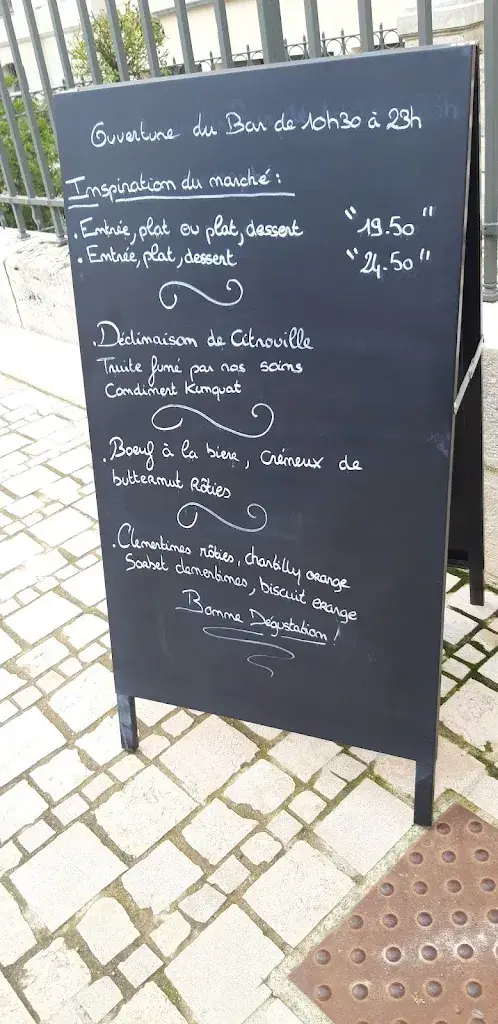 Ouverture du Bar de 10h30 à 23h
Inspiration du marché :
. Entrée, plat ou plat, dessert "19.50"
. Entrée, plat, dessert "24.50"
. Déclinaison de Citrouille
Truite fumé par nos soins
Condiment Kumquat
. Boeuf à la biere, Crémeux de
butternut Rôties
. Clementines rôties, chantilly orange
Sorbet clementines, biscuit orange
Bonne Dégustation !